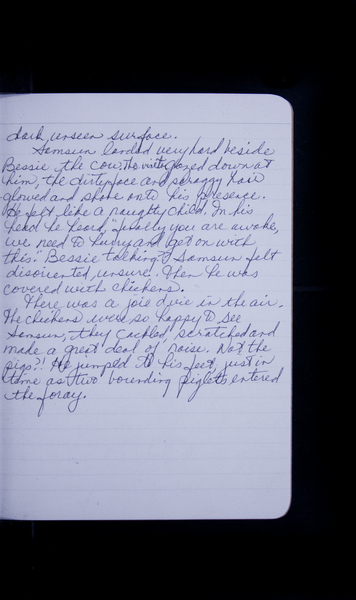 dark, unseen surface.
Samsun landed very hard beside
Bessie, the cow. The visitor gazed down at
him, the dirty face and scraggy hair
glowed and shone onto his presence.
He felt like a naughty child. In his
head he heard, "finally you are awake,
we need to hurry and get on with
this." Bessie talking? Samsun felt
disoriented, unsure. Then he was
covered with chickens.
There was a joie d vie in the air.
The chickens were so happy to see
Samsun, they cackled, scratched and
made a great deal of noise. Not the
pigs?! He jumped to his feet, just in
time as two bounding piglets entered
the foray.